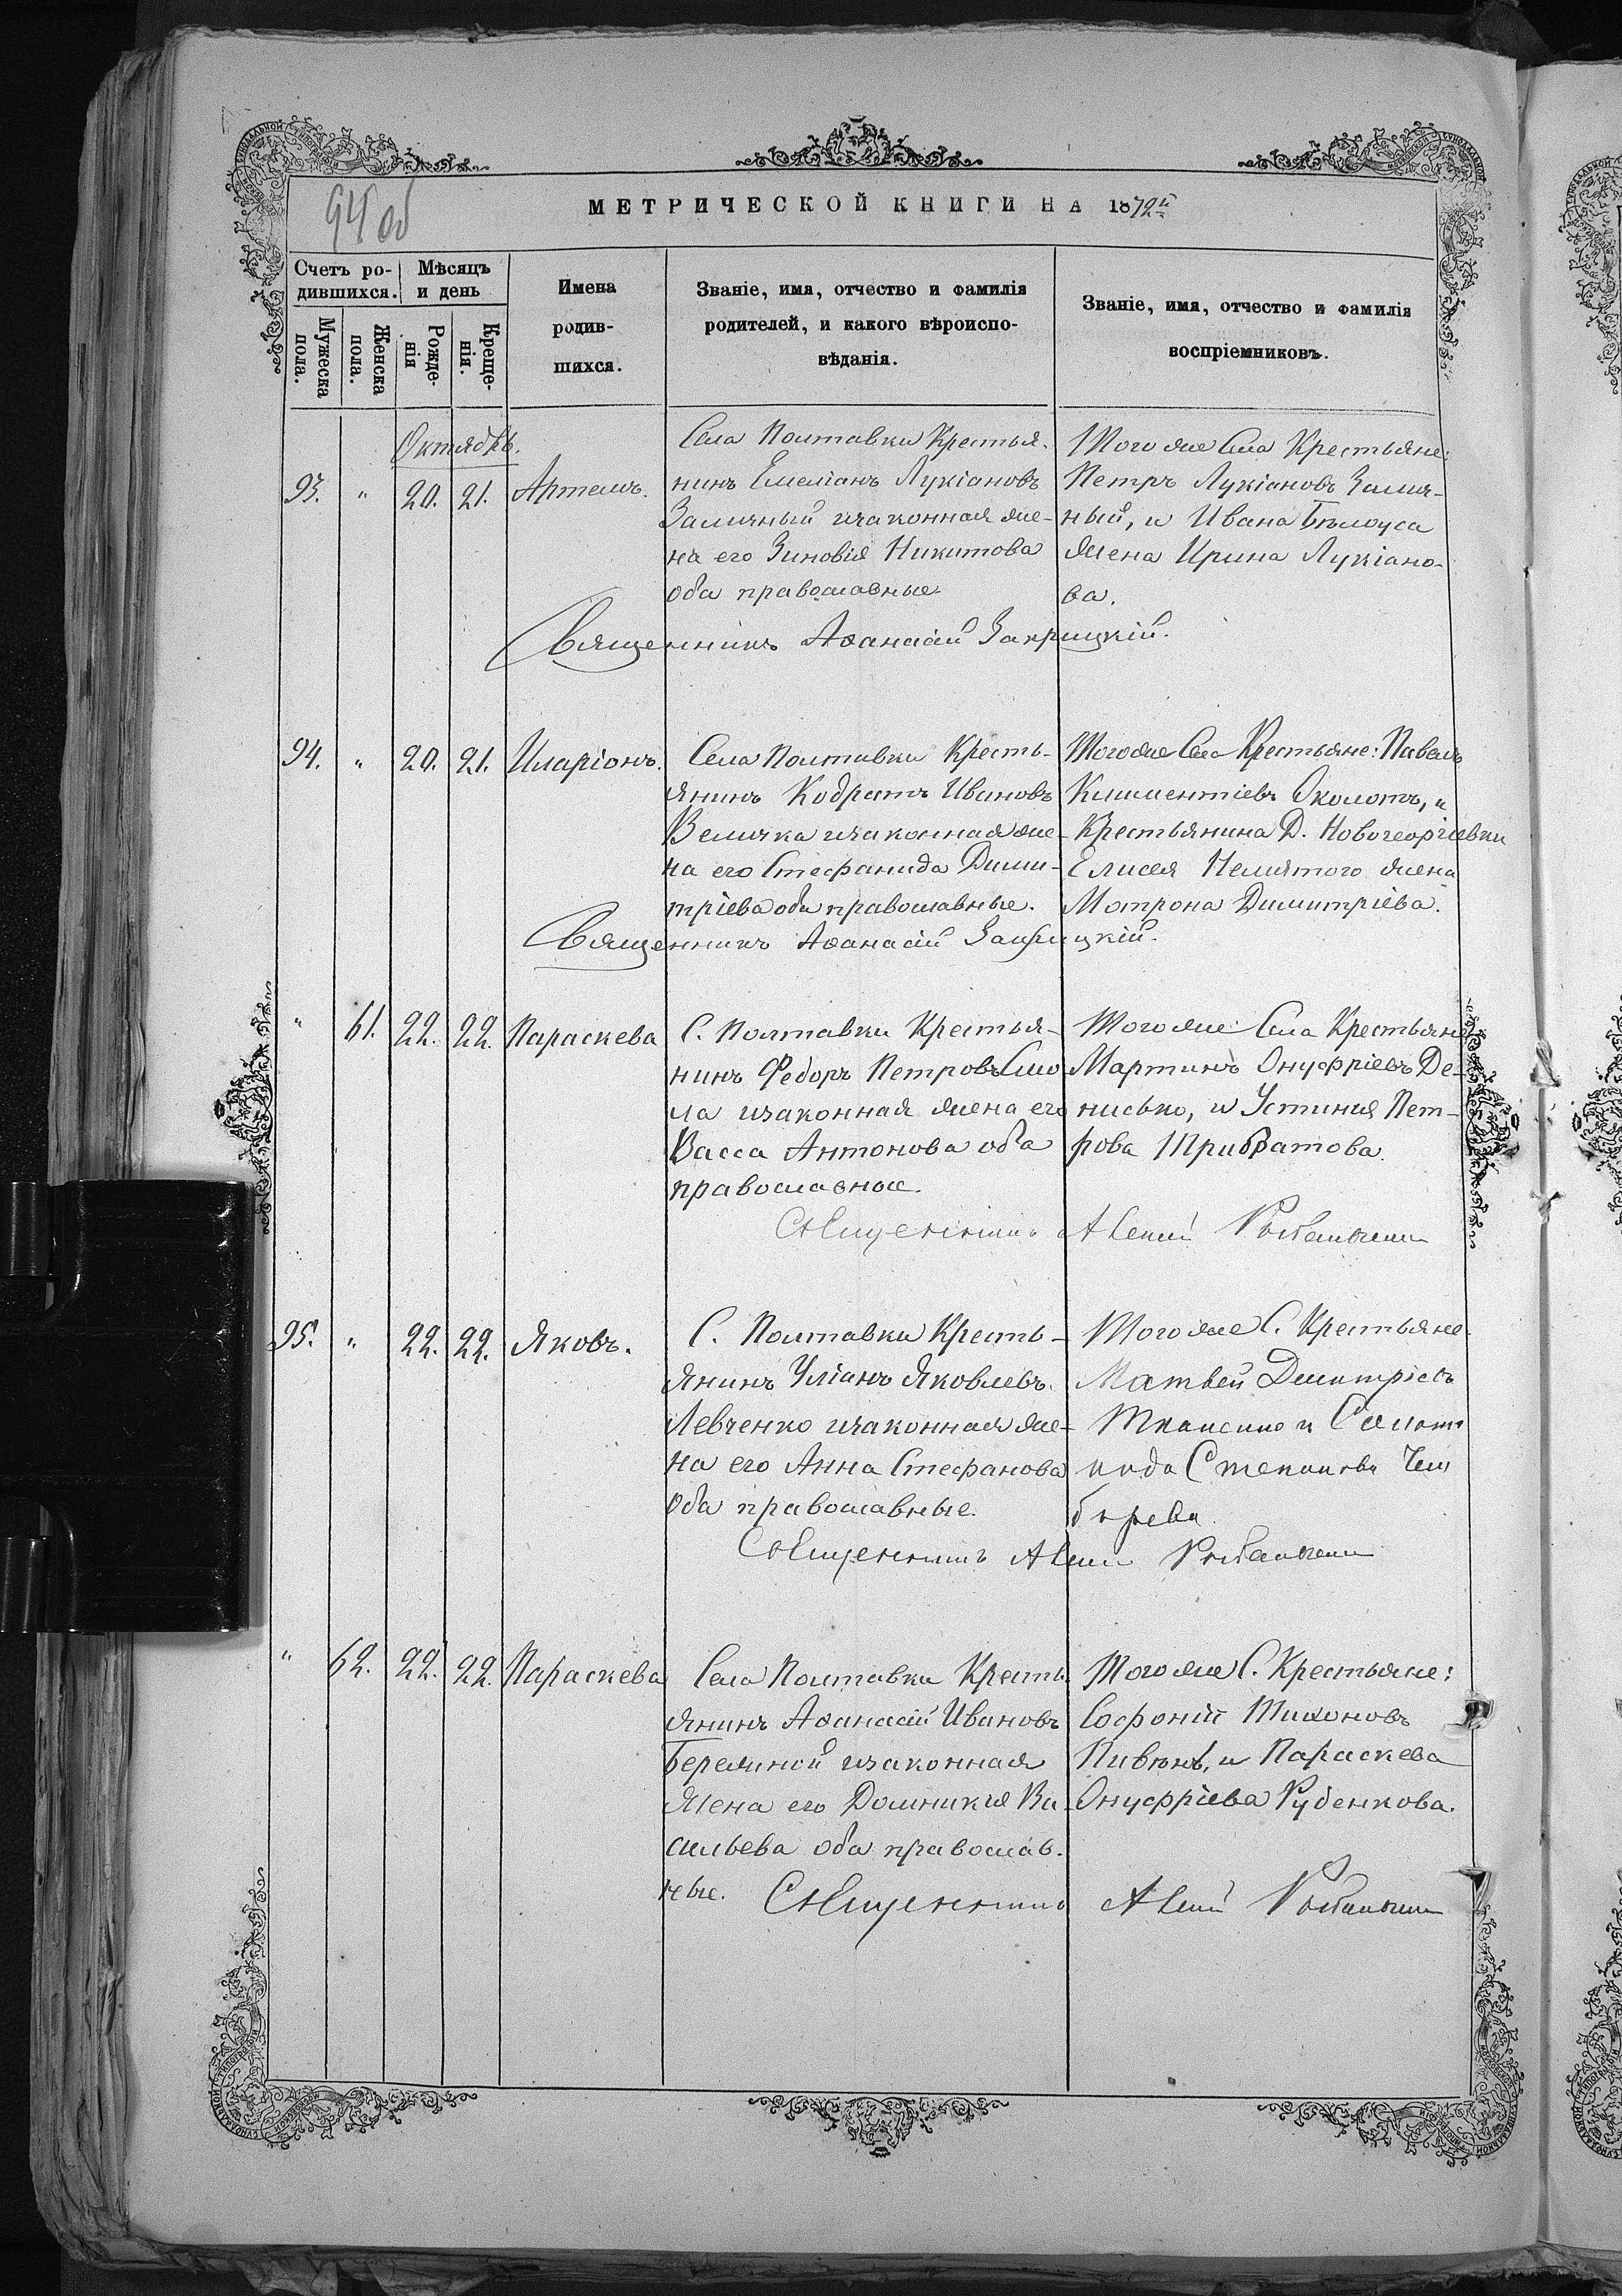 94 об
МЕТРИЧЕСКОЙ КНИГИ НА 1872й
Счетъ ро-
дившихся.
Мѣсяцъ
и день
Имена
родив-
шихся.
Званіе, имя, отчество и фамилія
родителей, и какого вѣроиспо-
вѣданія.
Званіе, имя, отчество и фамилія
воспріемниковъ.
Мужеска
пола.
Женска
пола.
Рожде-
нія
Креще-
нія.
Октябрь.
93. " 20. 21. Артемъ.
Села Полтавки Крестья-
нинъ Емеліанъ Лукіановъ
Зали́чный и законная же-
на его Зиновія Никитова
оба православные
Того же Села Крестьяне:
Петръ Лукіановъ Залич-
ный, и Ивана Бѣлоуса
жена Ирина Лукіано-
ва.
Священникъ Аѳанасій Закрицкій.
94. " 20. 21. Иларіонъ.
Села Полтавки Кресть-
янинъ Кодратъ Ивановъ
Величка и законная же-
на его Стефанида Дими-
тріева оба православные.
Того же Села Крестьяне: Павелъ
Климентіевъ Околотъ, и
Крестьянина Д. Новогеоргіевки
Елисея Немятого жена
Мотрона Димитріева.
Священникъ Аѳанасій Закрицкій.
" 61. 22. 22. Параскева
С. Полтавки Крестья-
нинъ Федоръ Петровъ Смо-
ла и законная жена его
Васса Антонова оба
православные.
Того же Села Крестьяне
Мартинъ Онуфріевъ Де-
нисько, и Устинія Пет-
рова Трибратова.
Священникъ
95. " 22. 22. Яковъ.
С. Полтавки Кресть-
янинъ Уліанъ Яковлевъ
Левченко и законная же-
на его Анна Стефанова
оба православные.
Того же С. Крестьяне
Матвей Димитріевъ
Ткаченко и
Степанова
Священникъ
" 62. 22. 22. Параскева
Села Полтавки Кресть
янинъ Аѳанасій Ивановъ
Бережной и законная
жена его Домникія Ва-
сильева оба православ-
ные.
Того же С. Крестьяне:
Софоній Тихоновъ
Пивень, и Параскева
Онуфріева Руденкова.
Священникъ